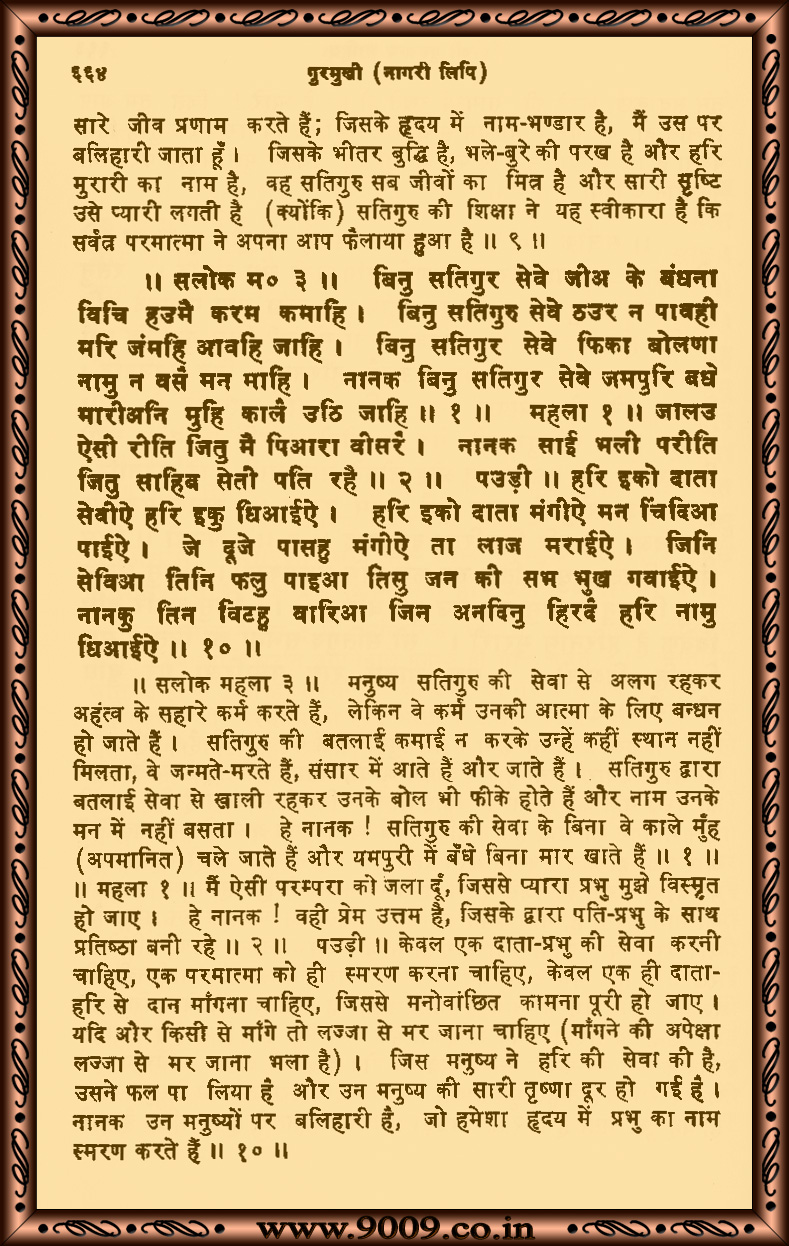 ६६४ गुरमुखी (नागरी लिपि)
सारे जीव प्रणाम करते हैं; जिसके हृदय में नाम-भण्डार है, मैं उस पर
बलिहारी जाता हूँ। जिसके भीतर बुद्धि है, भले-बुरे की परख है और हरि
मुरारी का नाम है, वह सतिगुरु सब जीवों का मित्र है और सारी सृष्टि
उसे प्यारी लगती है (क्योंकि) सतिगुरु की शिक्षा ने यह स्वीकारा है कि
सर्वत्र परमात्मा ने अपना आप फैलाया हुआ है ॥ ९ ॥
॥ सलोक म० ३ ॥ बिनु सतिगुर सेवे जीअ के बंधना
विचि हउमै करम कमाहि। बिनु सतिगुरु सेवे ठउर न पावही
मरि जंमहि आवहि जाहि। बिनु सतिगुर सेवे फिका बोलणा
नामु न वसै मन माहि। नानक बिनु सतिगुर सेवे जमपुरि बधे
मारीअनि मुहि कालै उठि जाहि ॥ १ ॥ महला १ ॥ जालउ
ऐसी रीति जितु मै पिआरा वीसरै। नानक साई भली परीति
जितु साहिब सेती पति रहै ॥ २ ॥ पउड़ी ॥ हरि इको दाता
सेवीऐ हरि इकु धिआईऐ। हरि इको दाता मंगीऐ मन चिंदिआ
पाईऐ। जे दूजे पासहु मंगीऐ ता लाज मराईऐ। जिनि
सेविआ तिनि फलु पाइआ तिसु जन की सभ भुख गवाईऐ।
नानकु तिन विटहु वारिआ जिन अनदिनु हिरदै हरि नामु
धिआईऐ ॥ १० ॥
॥ सलोक महला ३ ॥ मनुष्य सतिगुरु की सेवा से अलग रहकर
अहंत्व के सहारे कर्म करते हैं, लेकिन वे कर्म उनकी आत्मा के लिए बन्धन
हो जाते हैं। सतिगुरु की बतलाई कमाई न करके उन्हें कहीं स्थान नहीं
मिलता, वे जन्मते-मरते हैं, संसार में आते हैं और जाते हैं। सतिगुरु द्वारा
बतलाई सेवा से खाली रहकर उनके बोल भी फीके होते हैं और नाम उनके
मन में नहीं बसता। हे नानक ! सतिगुरु की सेवा के बिना वे काले मुँह
(अपमानित) चले जाते हैं और यमपुरी में बँधे बिना मार खाते हैं ॥ १ ॥
॥ महला १ ॥ मैं ऐसी परम्परा को जला दूँ, जिससे प्यारा प्रभु मुझे विस्मृत
हो जाए। हे नानक ! वही प्रेम उत्तम है, जिसके द्वारा पति-प्रभु के साथ
प्रतिष्ठा बनी रहे ॥ २ ॥ पउड़ी ॥ केवल एक दाता-प्रभु की सेवा करनी
चाहिए, एक परमात्मा को ही स्मरण करना चाहिए, केवल एक ही दाता-
हरि से दान माँगना चाहिए, जिससे मनोवांछित कामना पूरी हो जाए।
यदि और किसी से माँगे तो लज्जा से मर जाना चाहिए (माँगने की अपेक्षा
लज्जा से मर जाना भला है)। जिस मनुष्य ने हरि की सेवा की है,
उसने फल पा लिया है और उन मनुष्य की सारी तृष्णा दूर हो गई है।
नानक उन मनुष्यों पर बलिहारी है, जो हमेशा हृदय में प्रभु का नाम
स्मरण करते हैं ॥ १० ॥
www.9009.co.in